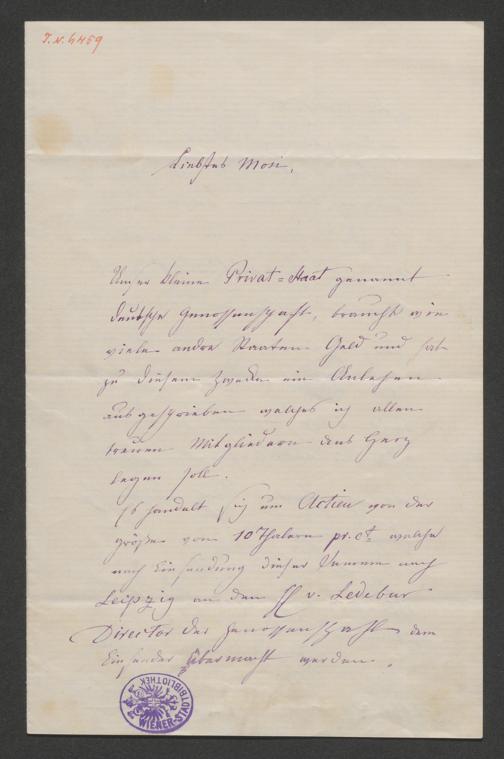 J.N. 6459
Liebstes Mosi,
Unser kleine Privat=Staat genannt
deutsche Genossenschaft, braucht wie
viele andre Staaten Geld und hat
zu diesem Zwecke ein Anlehen
ausgeschrieben welches ich allen
treuen Mitgliedern ans Herz
legen soll.
Es handelt sich um Actien von der
Größe von 10 Thalern pr. ct welche
nach Einsendung dieser Summe nach
Leipzig an den H v. Ledebur
Director der Genossenschaft dem
Einsender übermacht werden.
WIENER-STADTBIBLIOTHEK